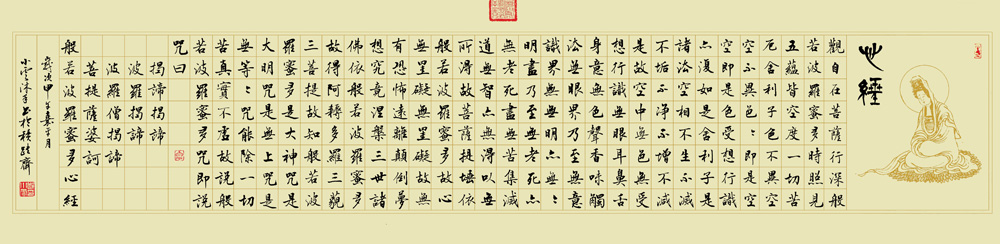 心經
觀自在菩薩行深般
若波羅蜜多時照見
五蘊皆空度一切苦
厄舍利子色不異空
空不異色〻即是空
空即是色受想行識
亦復如是舍利子是
諸法空相不生不滅
不垢不淨不增不減
是故空中無色無受
想行識無眼耳鼻舌
身意無色聲香味觸
法無眼界乃至無意
識界無〻明亦無〻
明盡乃至無老死亦
無老死盡無苦集滅
道無智亦無得以無
所得故菩提薩埵依
般若波羅蜜多故心
無罣礙無罣礙故無
有恐怖遠離顛倒夢
想究竟涅槃三世諸
佛依般若波羅蜜多
故得阿耨多羅三藐
三菩提故知般若波
羅蜜多是大神咒是
大明咒是無上咒是
無等〻咒能除一切
苦真實不虛故說般
若波羅蜜多咒即說
咒曰
揭諦揭諦
波羅揭諦
波羅僧揭諦
菩提薩婆訶
般若波羅蜜多心經
歲次甲午
沐手書於